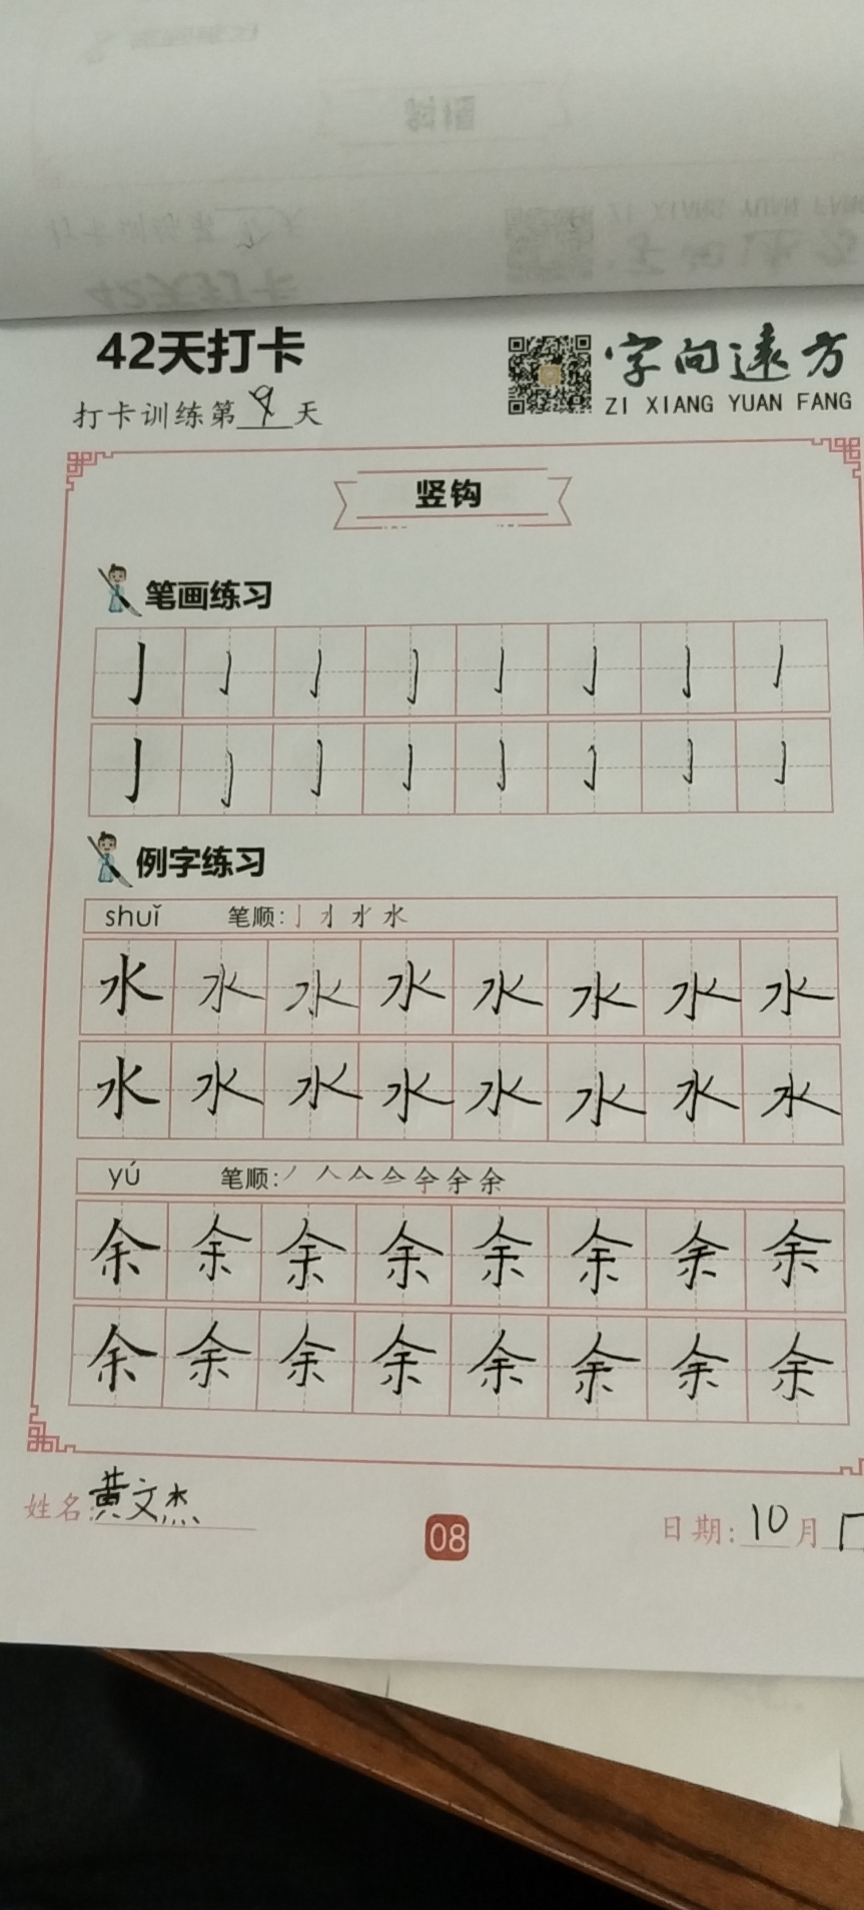 42天打卡
字向远方
打卡训练第9天
ZI XIANG YUAN FANG
竖钩
笔画练习
亅亅亅亅亅亅亅亅
亅亅亅亅亅亅亅亅
例字练习
shuǐ 笔顺:
水水水水水水水水
水水水水水水水水
yú 笔顺:
余余余余余余余余
余余余余余余余余
姓名:黄文杰
08
日期:10月